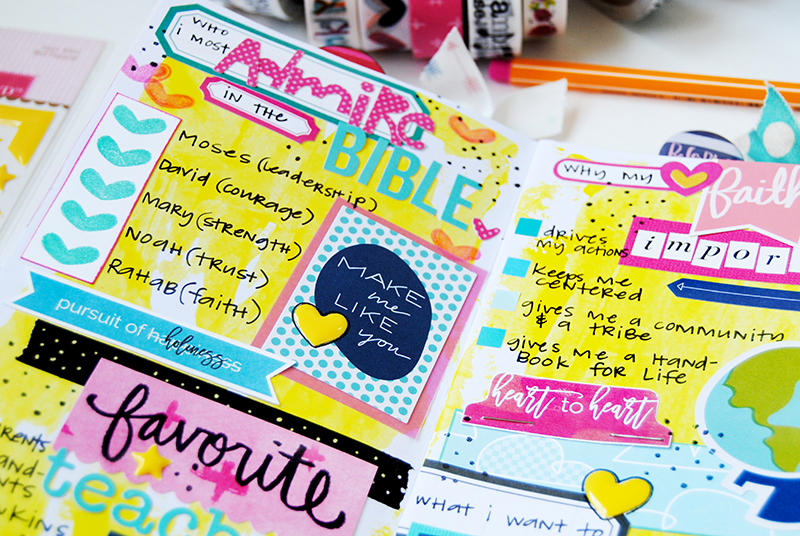 WHO
i MOST
Admire
iN THE
BIBLE
MOSES (LEADERSHiP)
DAViD (COURAGE)
MARY (STRENGTH)
NOAH (TRUST)
RAHAB (FAiTH)
MAKE
me
LiKE
you
pursuit of holiness
favorite
teach
WHY MY
faith
impor
DRiVES
MY ACTiONS
KEEPS ME
CENTERED
GiVES ME A COMMUNiTY
& A TRiBE
GiVES ME A HAND-
BOOK FOR LiFE
heart to heart
WHAT i WANT TO